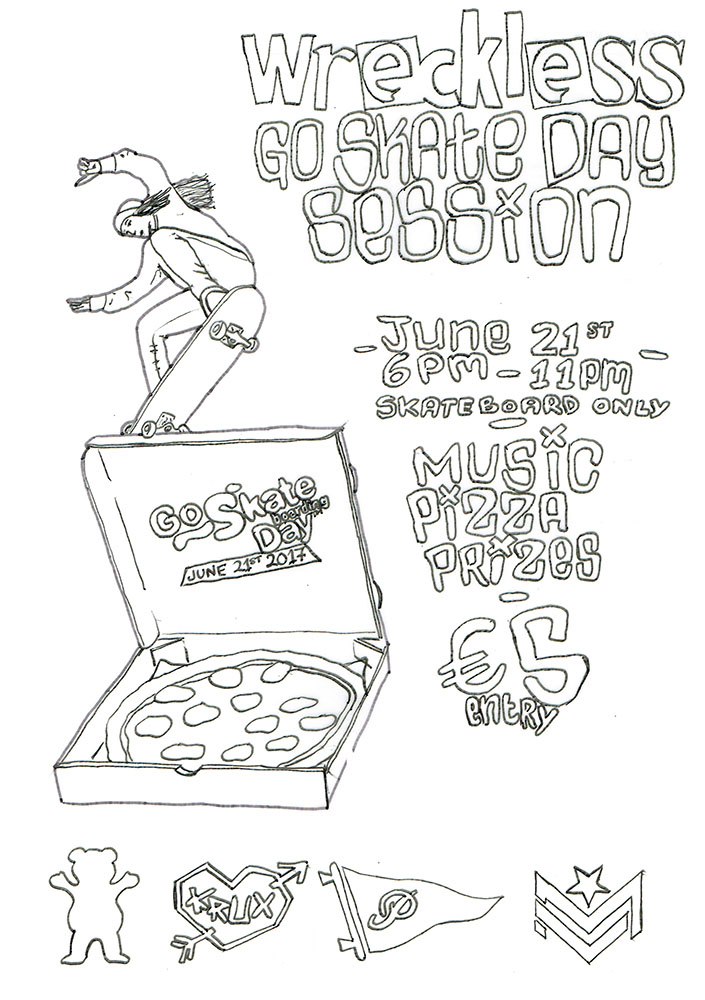 Wreckless
GO SKAte DAY
Session
- June 21ST -
6PM - 11PM
SKATEBOARD ONLY
-
MUSiC
PiZZA
PRiZES
-
€5
entRY
GO Skate
boarding
Day
JUNE 21ST 2017
KRUX
P